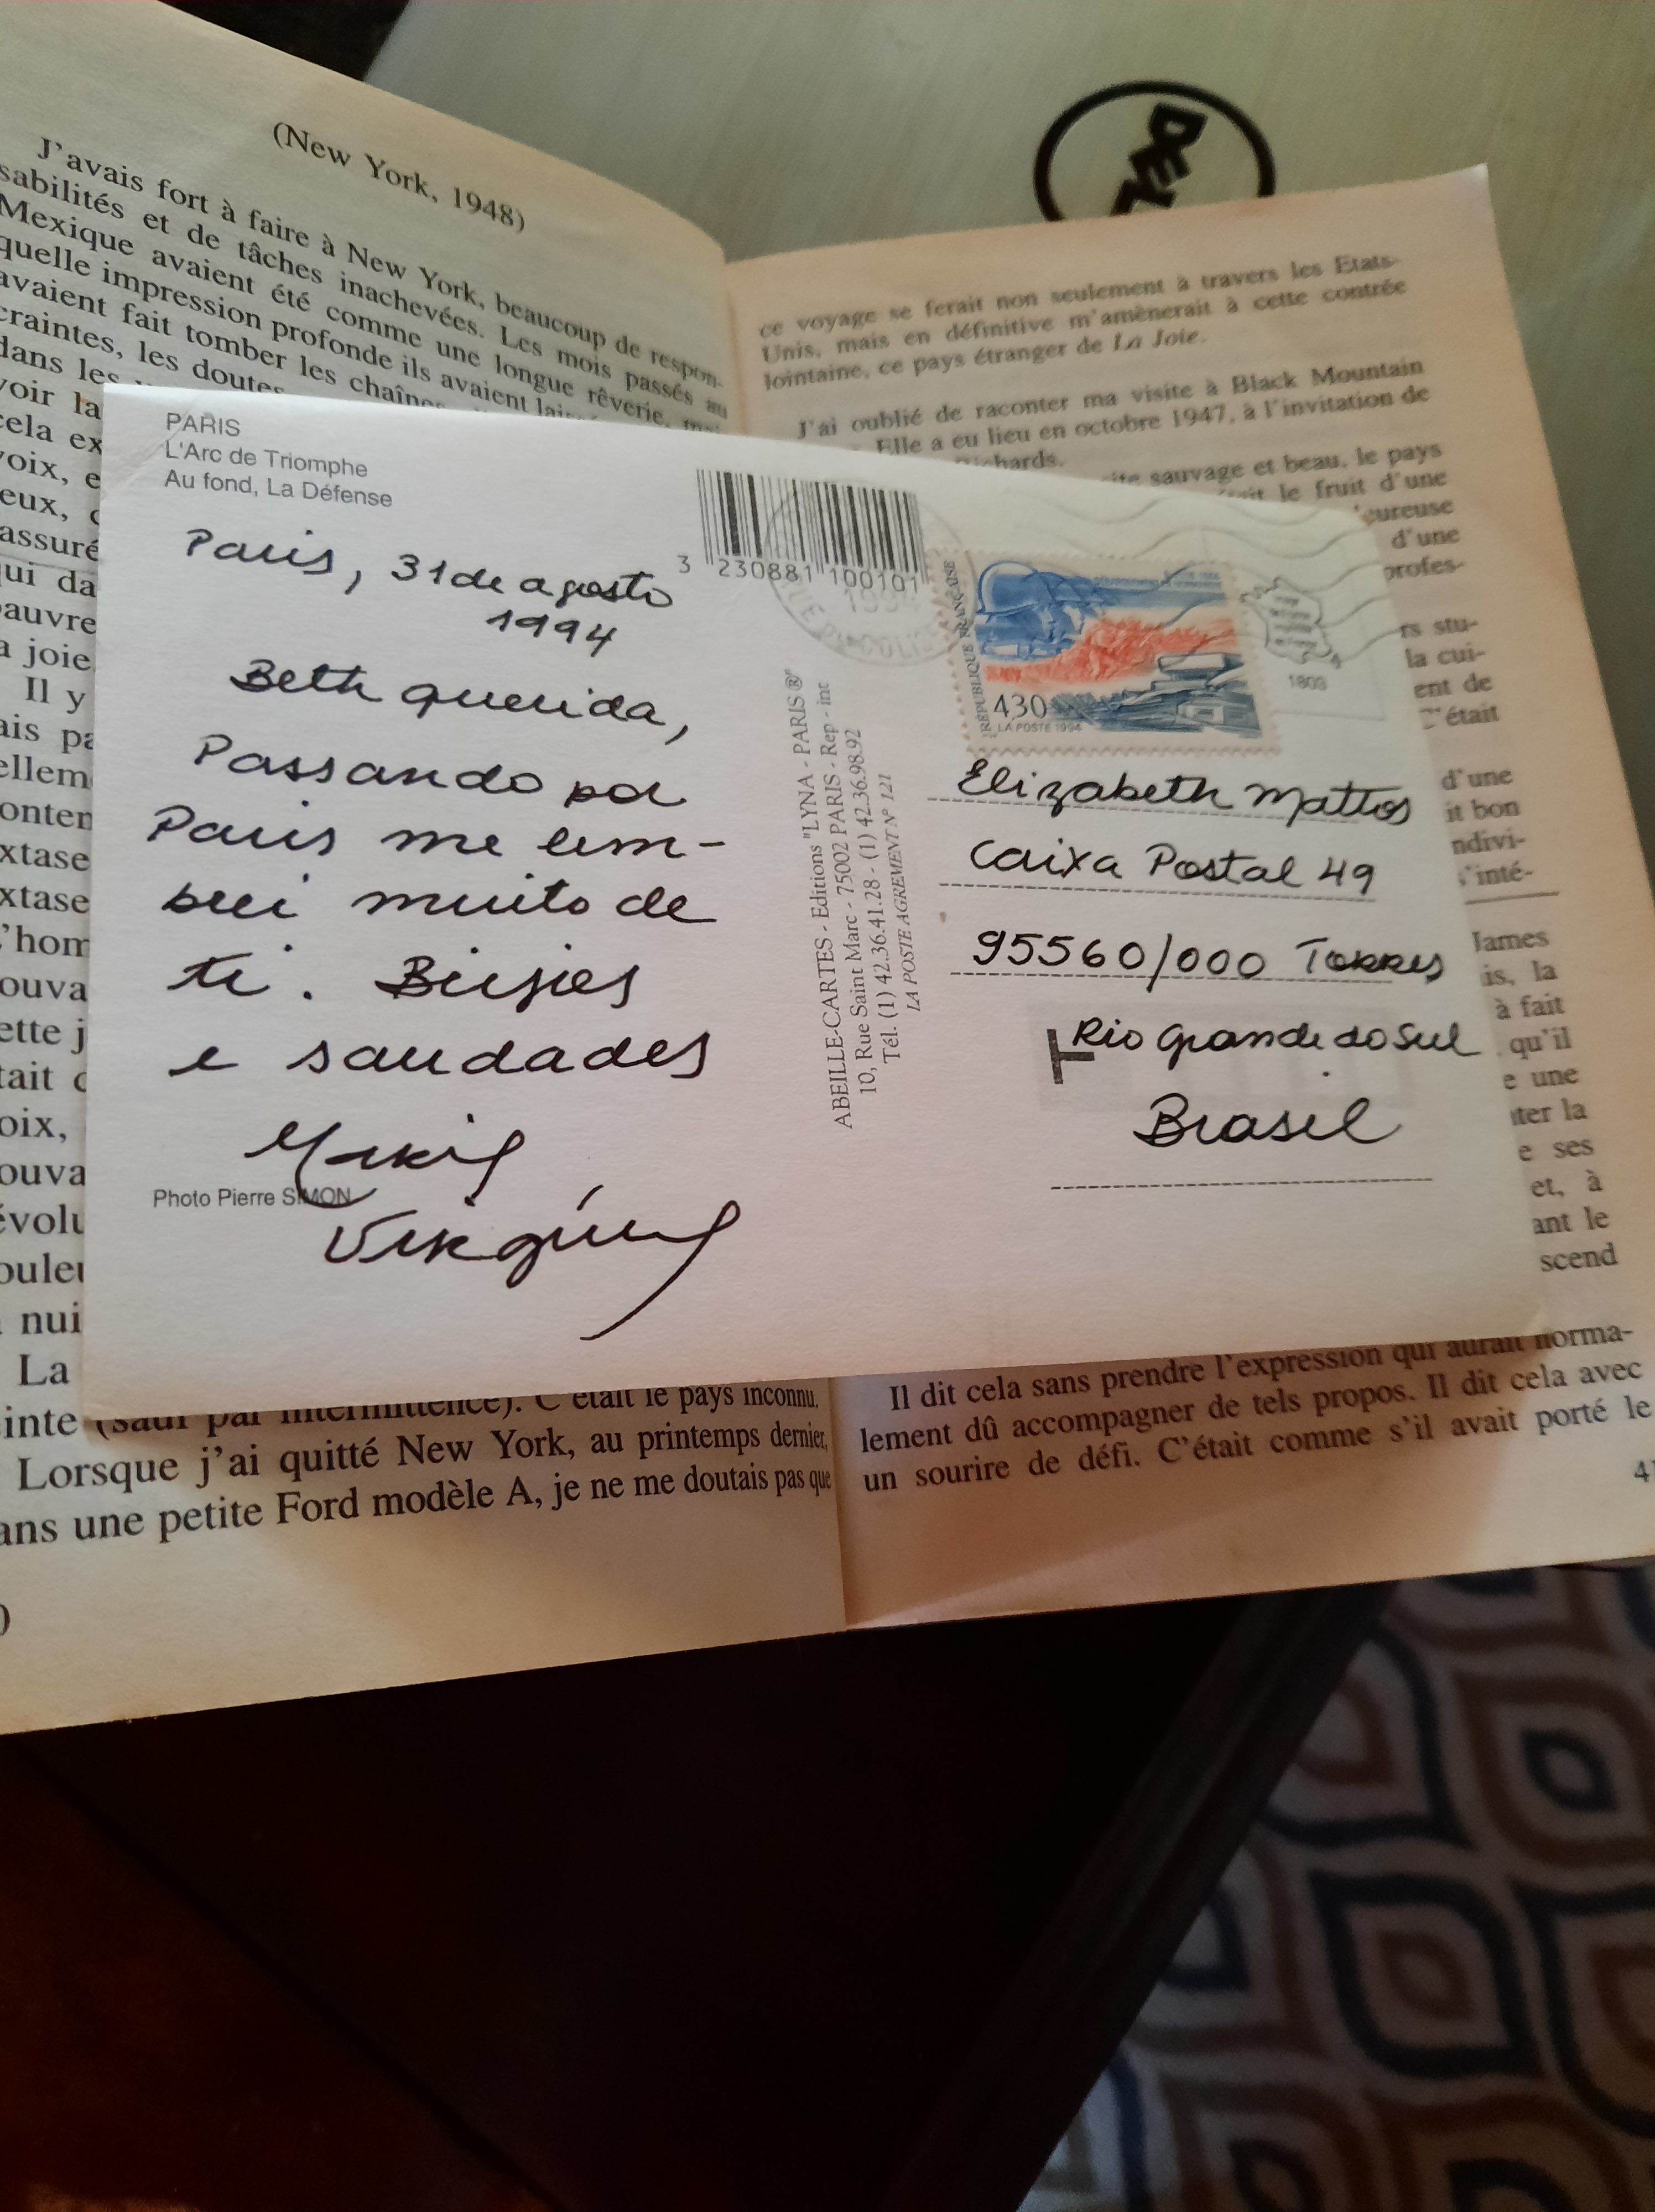 (New York, 1948)
J'avais fort à faire à New York, beaucoup de respon-
sabilités et de tâches inachevées. Les mois passés au
Mexique avaient été comme une longue rêverie, mais
quelle impression profonde ils avaient
avaient fait tomber les chaînes
craintes, les doutes
dans les
voir la
cela ex
voix, e
eux,
assuré
qui da
pauvre
a joie
Il y
ais pa
ellem
onten
xtase
xtase
'hom
ouva
ette j
tait
oix,
ouva
évolu
ouleu
nui
La
inte (sauf par intermittence). C'était le pays inconnu.
Lorsque j'ai quitté New York, au printemps dernier,
ans une petite Ford modèle A, je ne me doutais pas que
ce voyage se ferait non seulement à travers les Etats-
Unis, mais en définitive m'amènerait à cette contrée
lointaine, ce pays étranger de La Joie.
J'ai oublié de raconter ma visite à Black Mountain
Elle a eu lieu en octobre 1947, à l'invitation de
Richards.
site sauvage et beau, le pays
le fruit d'une
d'une
profes-
rs stu-
la cui-
ent de
C'était
d'une
it bon
ndivi-
s'inté-
James
is, la
à fait
qu'il
e une
ter la
e ses
et, à
ant le
scend
Il dit cela sans prendre l'expression qui aurait norma-
lement dû accompagner de tels propos. Il dit cela avec
un sourire de défi. C'était comme s'il avait porté le
PARIS
L'Arc de Triomphe
Au fond, La Défense
Paris, 31 de agosto
1994
Beth querida,
Passando por
Paris me lem-
brei muito de
ti. Beijos
e saudades
Maria
Virgínia
Photo Pierre SIMON
3 230881 100101
ABEILLE-CARTES - Editions "LYNA - PARIS ®"
10, Rue Saint Marc - 75002 PARIS - Rep - int
Tél. (1) 42.36.41.28 - (1) 42.36.98.92
LA POSTE AGREMENT N° 121
RÉPUBLIQUE FRANÇAISE
4,30
LA POSTE 1994
1803
Elizabeth Mattos
Caixa Postal 49
95560/000 Torres
Rio Grande do Sul
Brasil